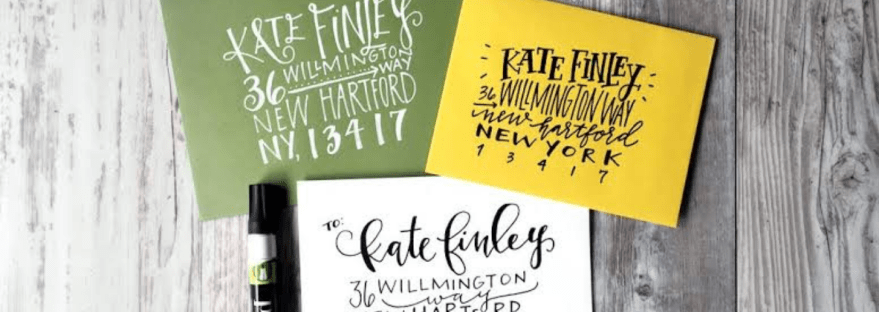 KATE FINLEY
36 WILLMINGTON
WAY
NEW HARTFORD
NY, 13417
KATE FINLEY
36 WILLMINGTON WAY
new hartford
NEW YORK
1 3 4 1 7
TO:
kate finley
36 WILLMINGTON
way
HARTFORD